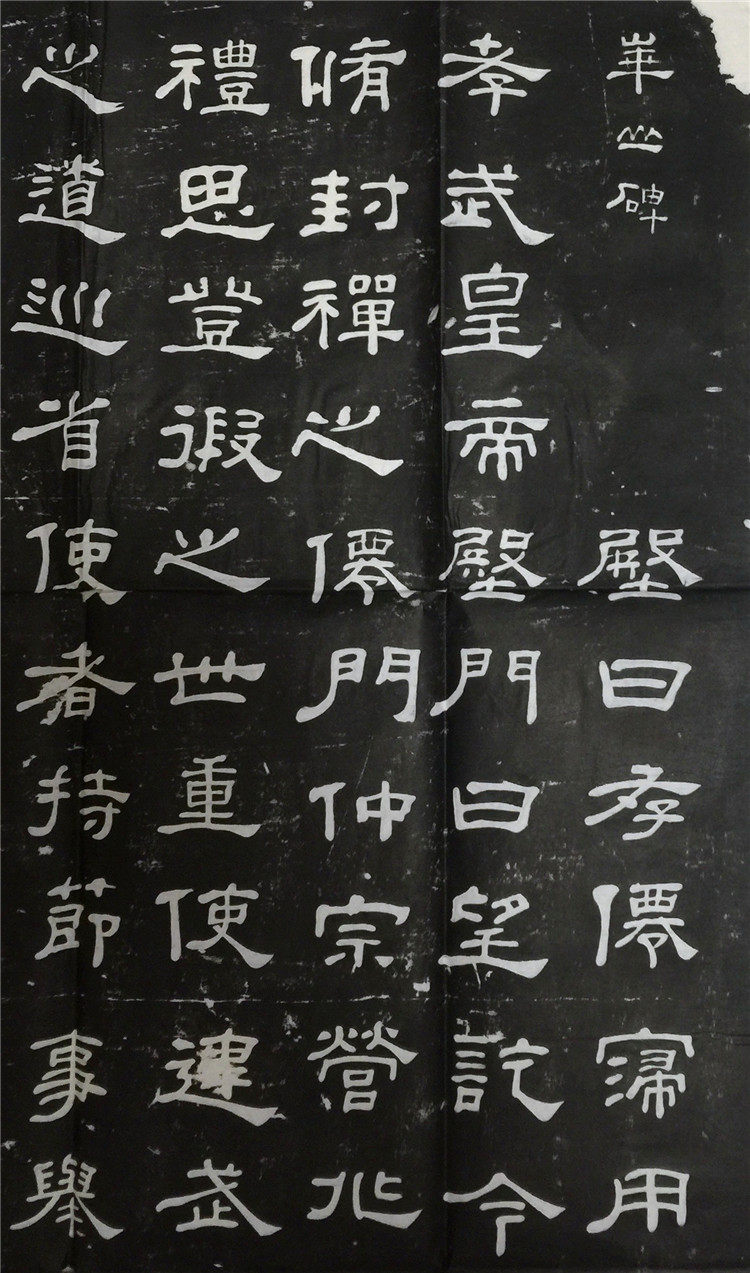 崋山碑 壂曰存僊寖用
孝武皇帝壂門曰望訖今
脩封禪之僊門仲宗營兆
禮思登徦之世重使建武
之道巡省使者持節事舉